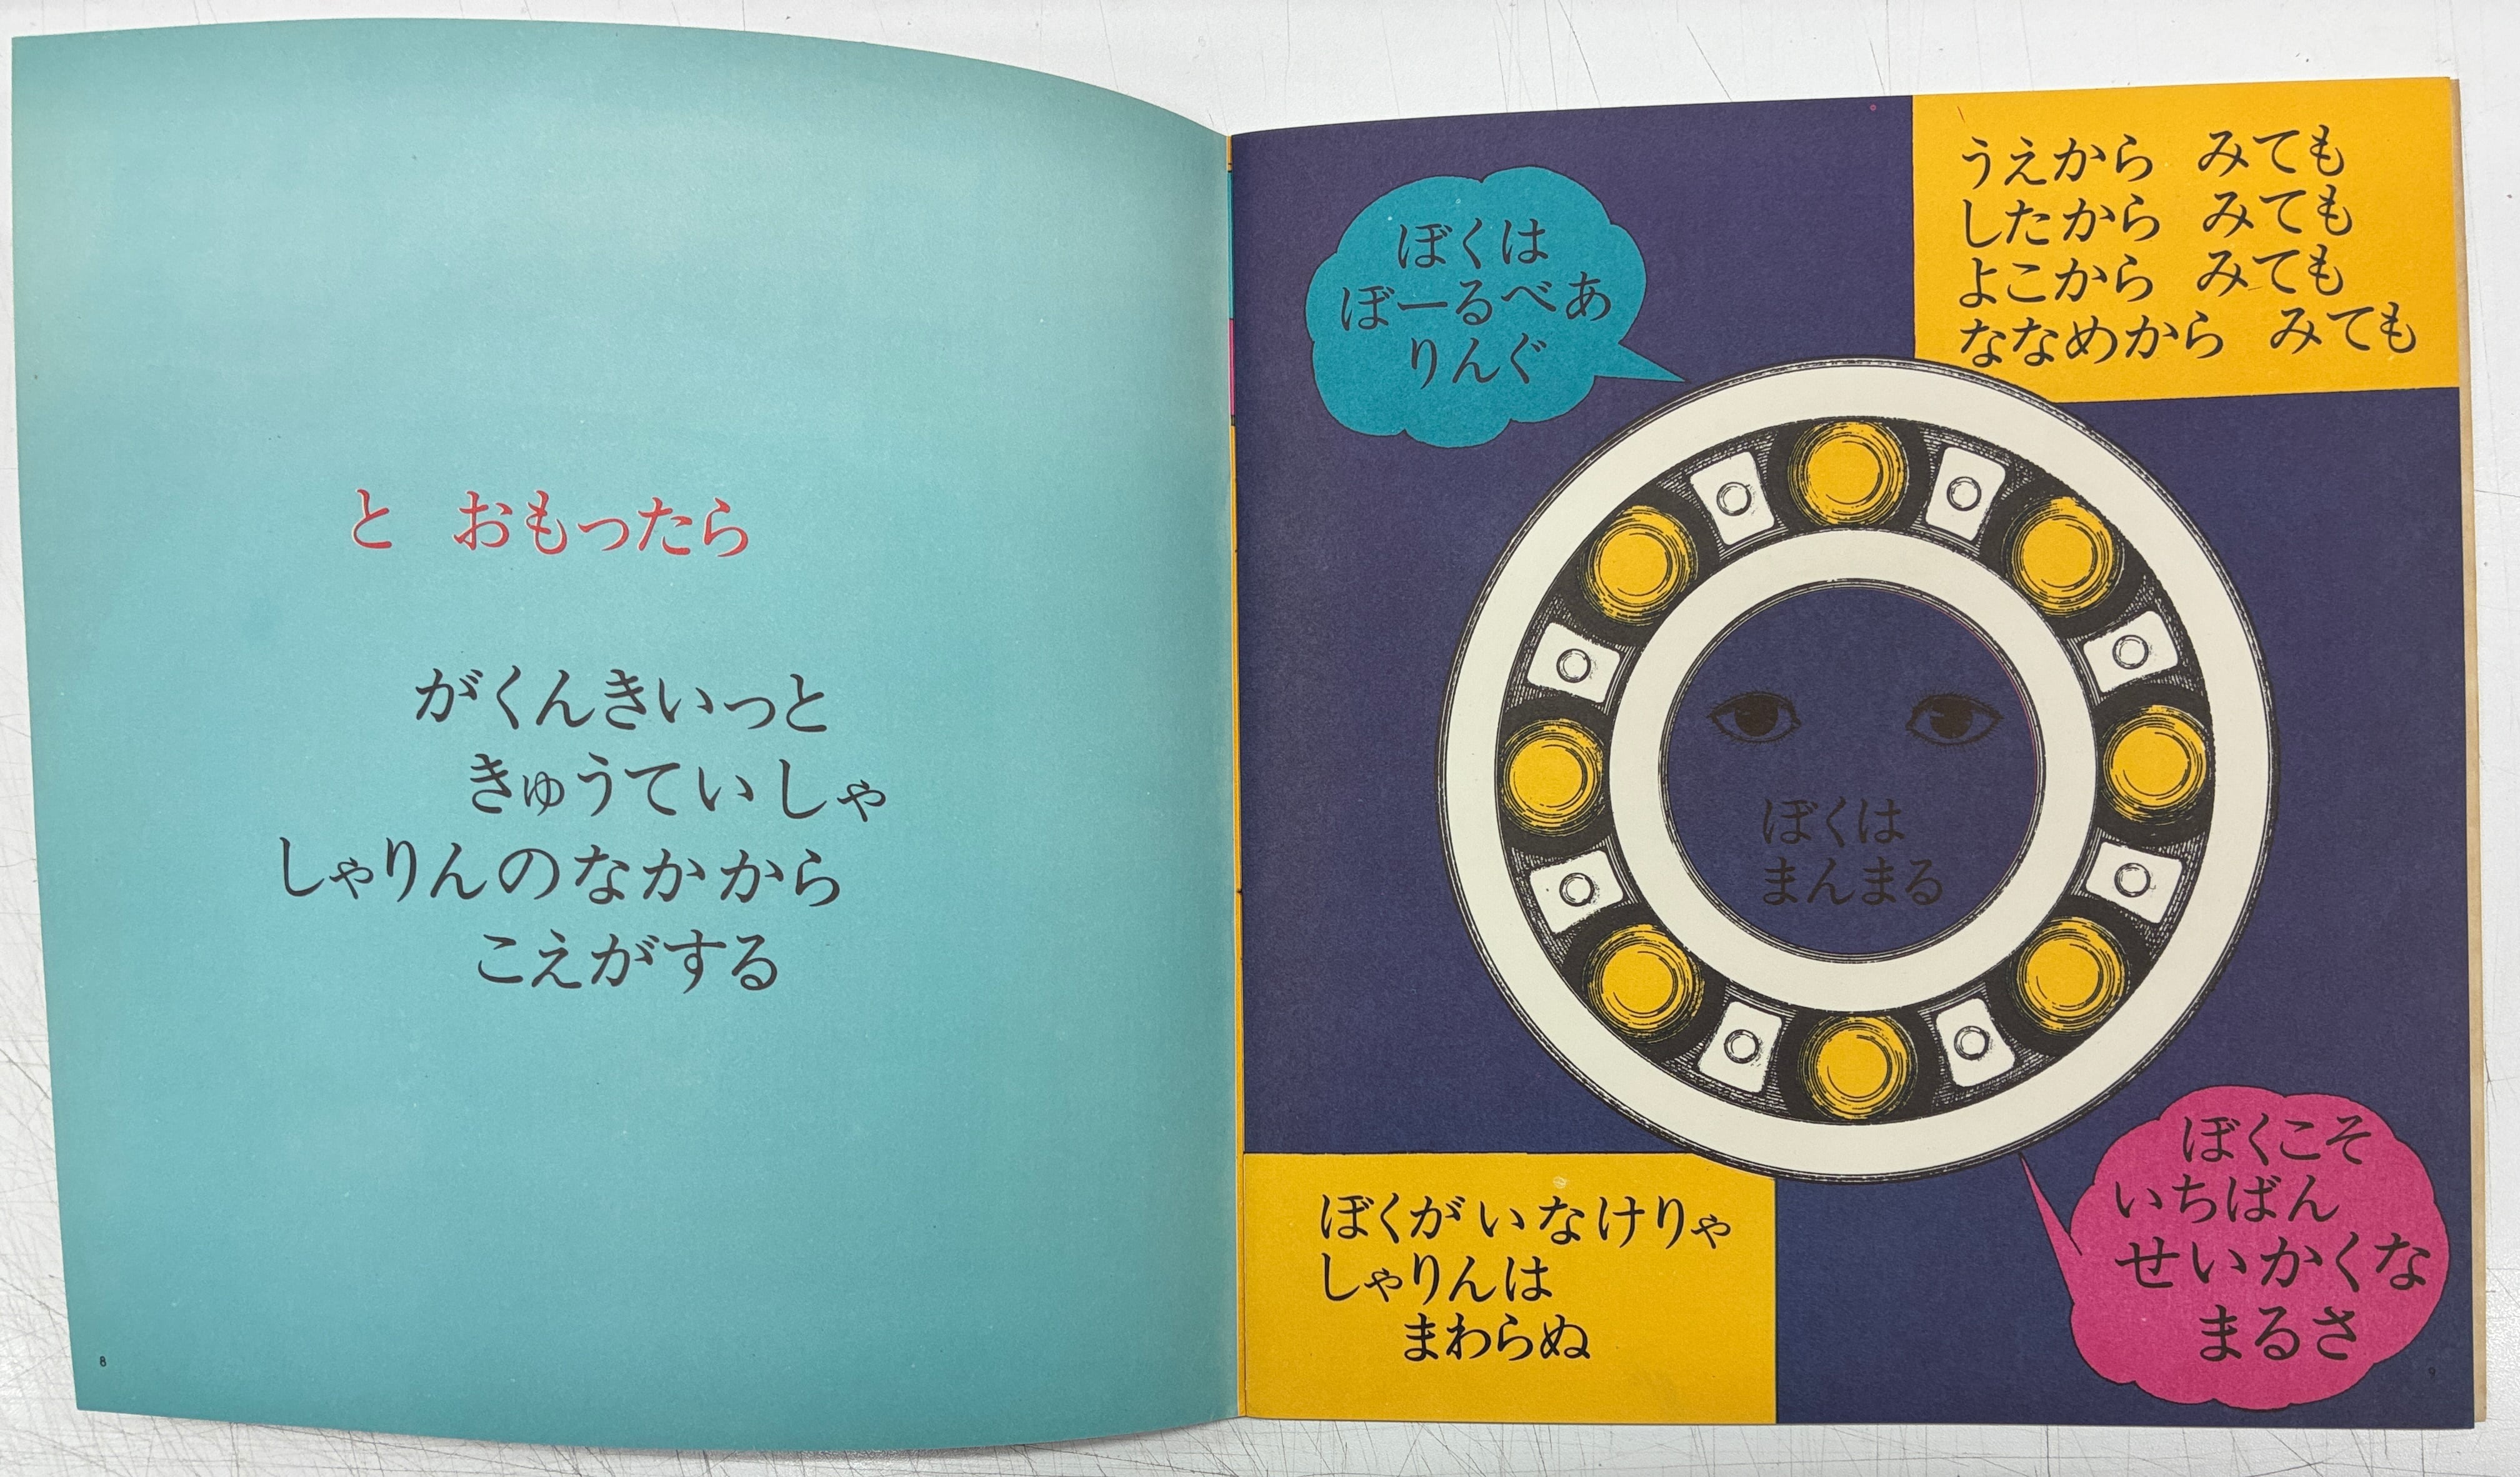 と　おもったら
がくんきいっと
きゅうていしゃ
しゃりんのなかから
こえがする
8
ぼくは
ぼーるべあ
りんぐ
うえから　みても
したから　みても
よこから　みても
ななめから　みても
ぼくは
まんまる
ぼくがいなけりゃ
しゃりんは
まわらぬ
ぼくこそ
いちばん
せいかくな
まるさ
9